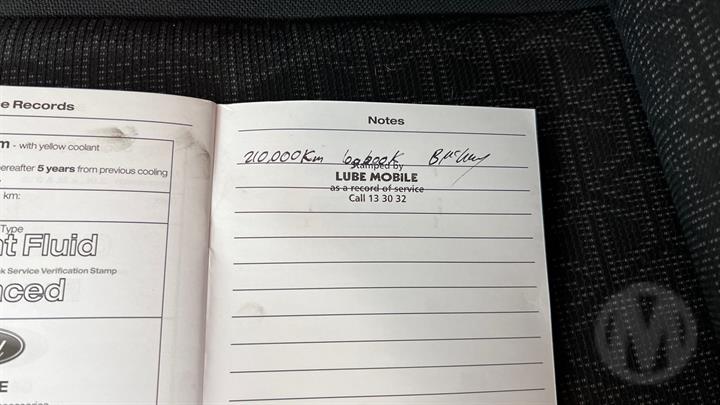 e Records
m - with yellow coolant
ereafter 5 years from previous cooling
km:
Type
t Fluid
k Service Verification Stamp
nced
E
Notes
210,000Km logbook
Stamped by
LUBE MOBILE
as a record of service
Call 13 30 32
M